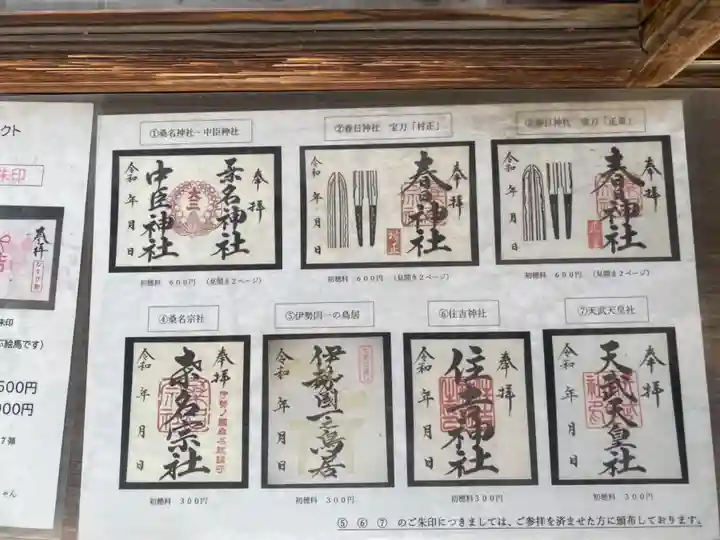 クト
朱印
奉拝
朱印
絵馬です）
500円
000円
7弾
ゃん
①桑名神社・中臣神社
奉拝
桑名神社
中臣神社
令和 年 月 日
初穂料 600円 （見開き2ページ）
②春日神社 宝刀「村正」
奉拝
春日神社
村正
令和 年 月 日
初穂料 600円 （見開き2ページ）
③春日神社 宝刀「正重」
奉拝
春日神社
正重
令和 年 月 日
初穂料 600円 （見開き2ページ）
④桑名宗社
奉拝
桑名宗社
令和 年 月 日
初穂料 300円
⑤伊勢国一の鳥居
伊勢国一之鳥居
令和 年 月 日
初穂料 300円
⑥住吉神社
奉拝
住吉神社
令和 年 月 日
初穂料 300円
⑦天武天皇社
奉拝
天武天皇社
令和 年 月 日
初穂料 300円
⑤ ⑥ ⑦ のご朱印につきましては、ご参拝を済ませた方に頒布しております。